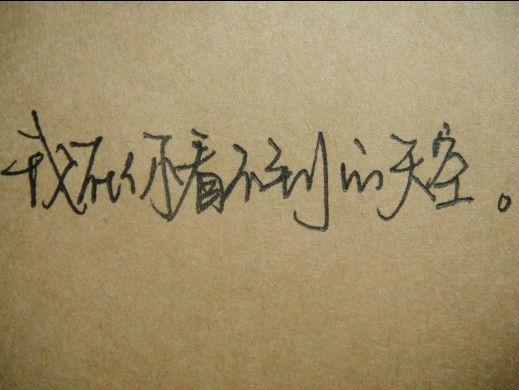 我在你看不到的天空。